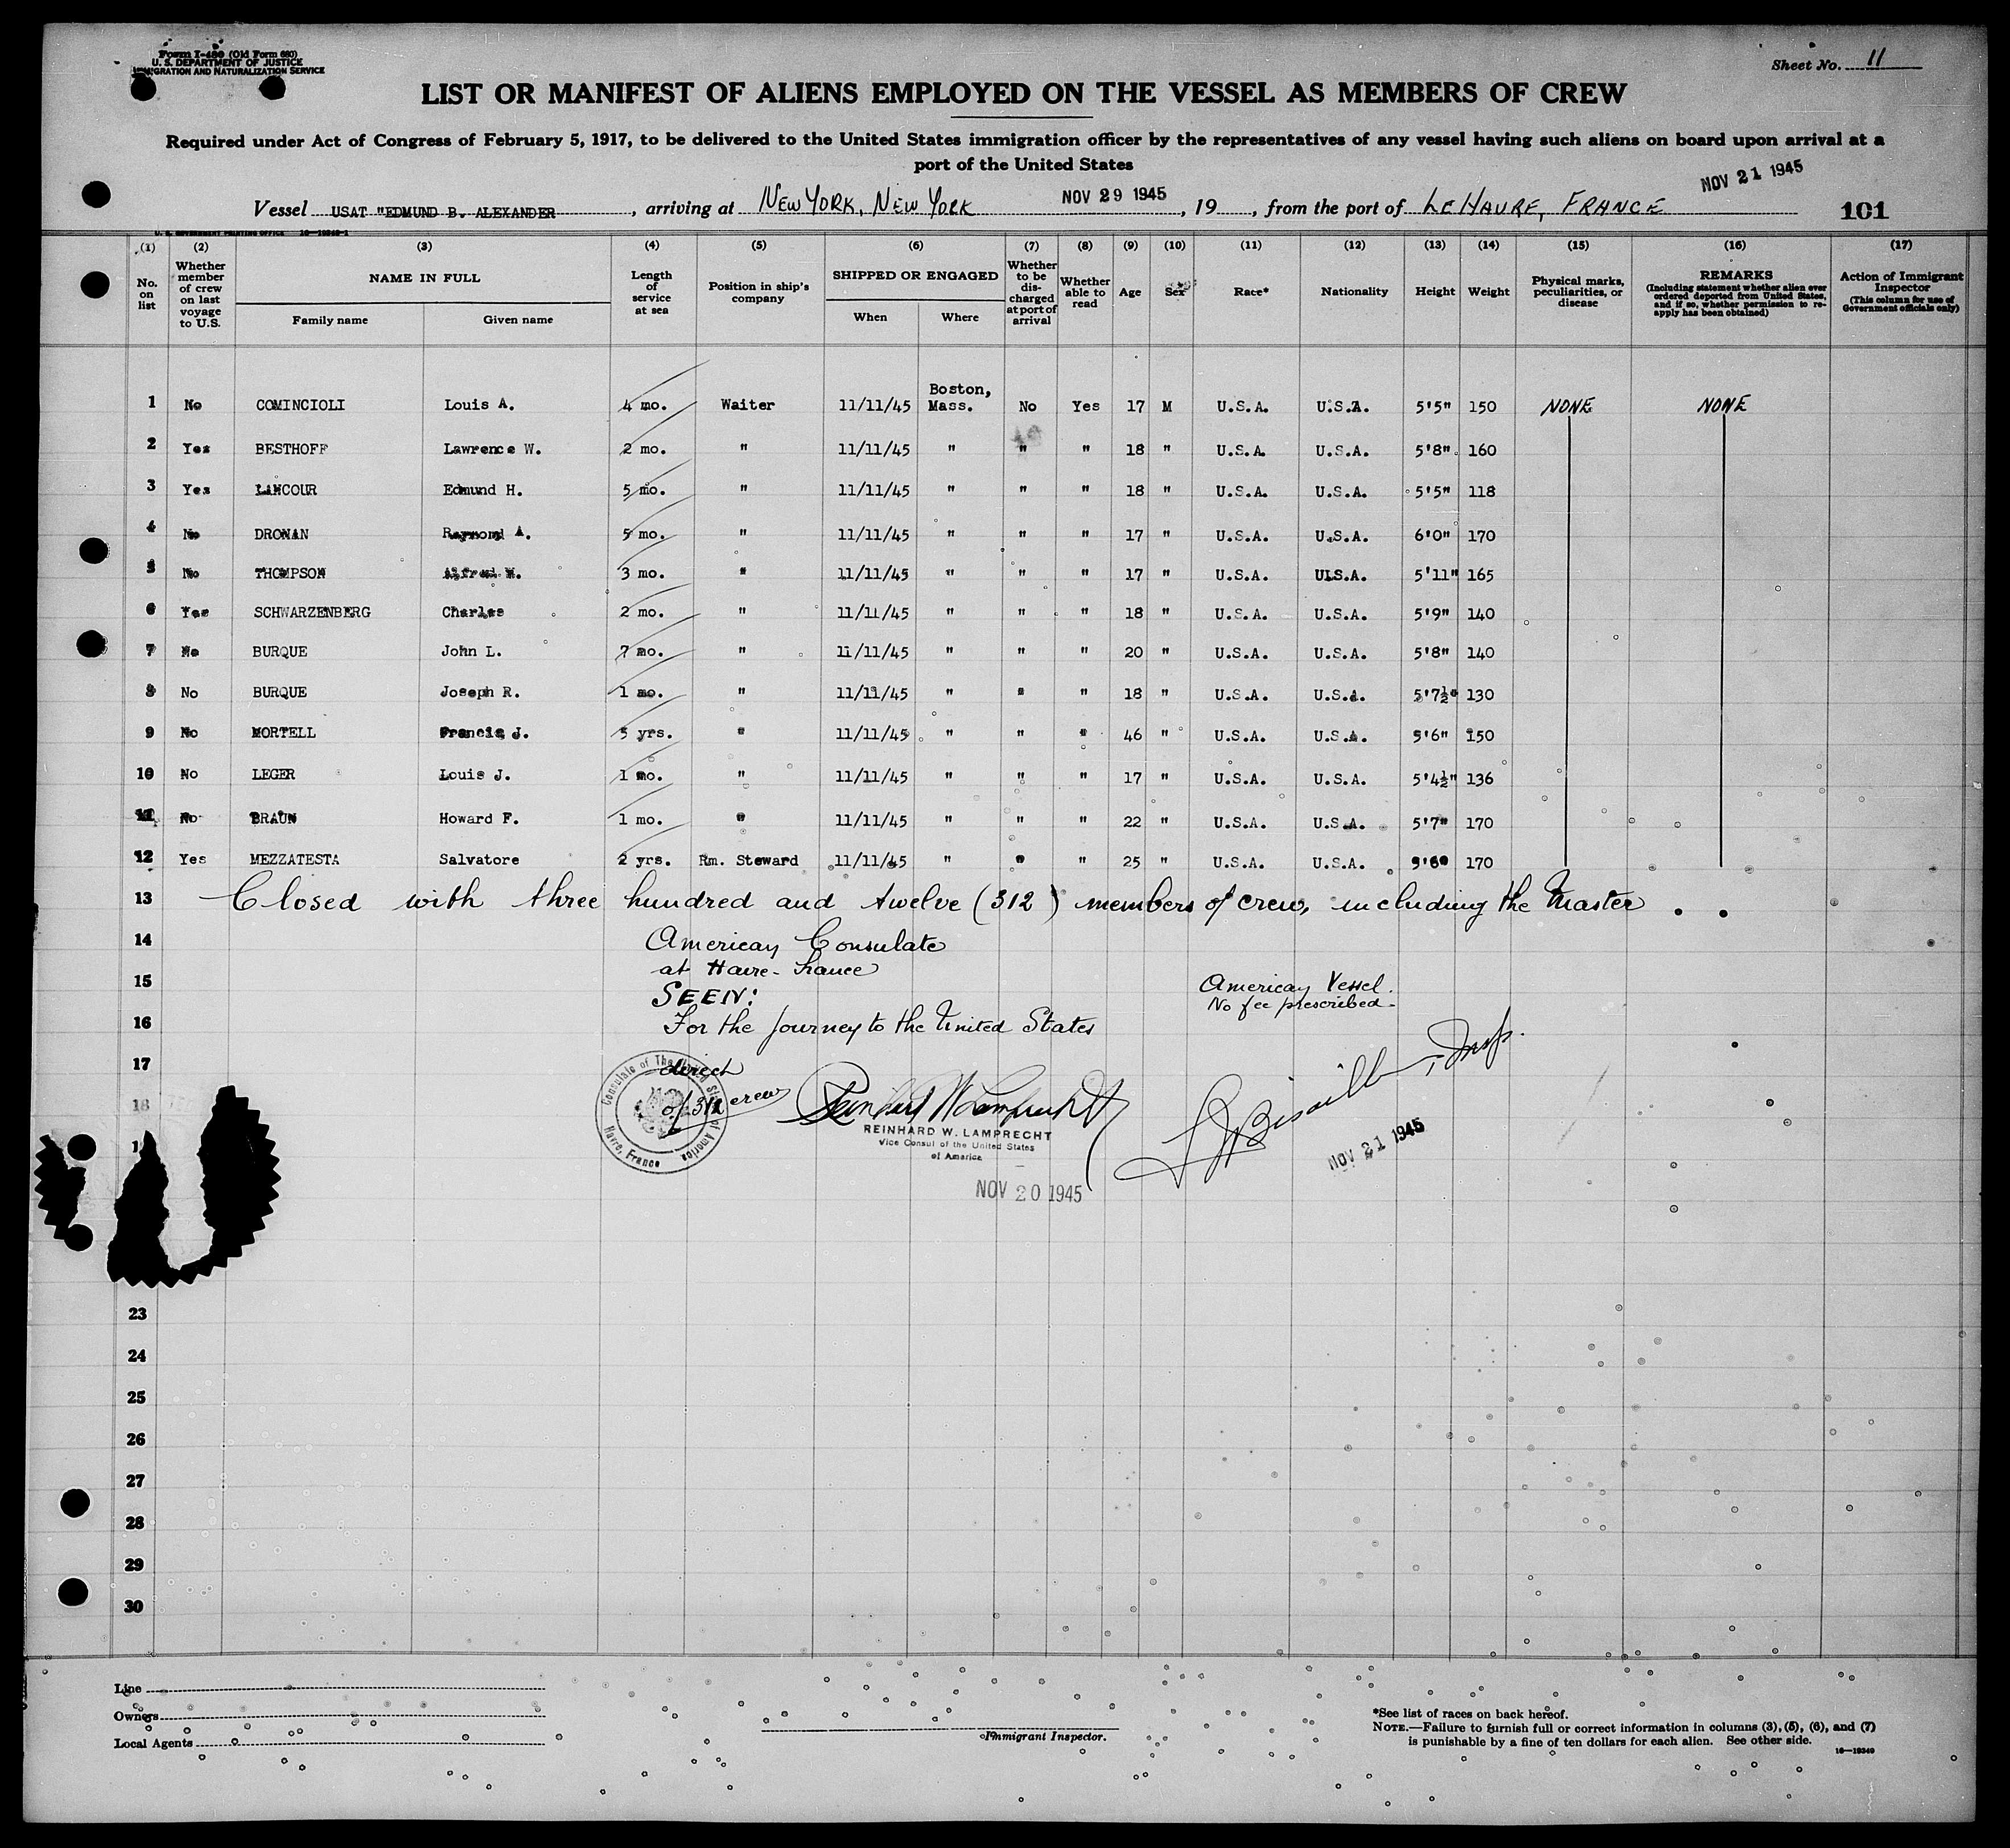 Form I-480 (Old Form 680)
U. S. DEPARTMENT OF JUSTICE
IMMIGRATION AND NATURALIZATION SERVICE
Sheet No. 11
LIST OR MANIFEST OF ALIENS EMPLOYED ON THE VESSEL AS MEMBERS OF CREW
Required under Act of Congress of February 5, 1917, to be delivered to the United States immigration officer by the representatives of any vessel having such aliens on board upon arrival at a
port of the United States
NOV 21 1945
Vessel USAT "EDMUND B. ALEXANDER, arriving at NEW YORK, NEW YORK NOV 29 1945, 19, from the port of LE HAVRE, FRANCE 101
(1) (2) (3) (4) (5) (6) (7) (8) (9) (10) (11) (12) (13) (14) (15) (16) (17)
No. on list
Whether member of crew on last voyage to U.S.
NAME IN FULL
Family name Given name
Length of service at sea
Position in ship's company
SHIPPED OR ENGAGED
When Where
Whether to be discharged at port of arrival
Whether able to read
Age
Sex
Race*
Nationality
Height
Weight
Physical marks, peculiarities, or disease
REMARKS
(Including statement whether alien ever ordered deported from United States, and if so, whether permission to reapply has been obtained)
Action of Immigrant Inspector
(This column for use of Government officials only)
1 No COMINCIOLI Louis A. 4 mo. Waiter 11/11/45 Boston, Mass. No Yes 17 M U.S.A. U.S.A. 5'5" 150 NONE NONE
2 Yes BESTHOFF Lawrence W. 2 mo. " 11/11/45 " " " 18 " U.S.A. U.S.A. 5'8" 160
3 Yes LANCOUR Edmund H. 5 mo. " 11/11/45 " " " 18 " U.S.A. U.S.A. 5'5" 118
4 No DRONAN Raymond A. 5 mo. " 11/11/45 " " " 17 " U.S.A. U.S.A. 6'0" 170
5 No THOMPSON Alfred W. 3 mo. " 11/11/45 " " " 17 " U.S.A. U.S.A. 5'11" 165
6 Yes SCHWARZENBERG Charles 2 mo. " 11/11/45 " " " 18 " U.S.A. U.S.A. 5'9" 140
7 No BURQUE John L. 7 mo. " 11/11/45 " " " 20 " U.S.A. U.S.A. 5'8" 140
8 No BURQUE Joseph R. 1 mo. " 11/11/45 " " " 18 " U.S.A. U.S.A. 5'7½" 130
9 No MORTELL Francis J. 5 yrs. " 11/11/45 " " " 46 " U.S.A. U.S.A. 5'6" 150
10 No LEGER Louis J. 1 mo. " 11/11/45 " " " 17 " U.S.A. U.S.A. 5'4½" 136
11 No BRAUN Howard F. 1 mo. " 11/11/45 " " " 22 " U.S.A. U.S.A. 5'7" 170
12 Yes MEZZATESTA Salvatore 2 yrs. Rm. Steward 11/11/45 " " " 25 " U.S.A. U.S.A. 5'6" 170
13 Closed with three hundred and twelve (312) members of crew, including the Master.
14 American Consulate
at Havre - France
15 SEEN:
American Vessel.
No fee prescribed -
16 For the journey to the United States
17 direct
18 of 312 crew
Consulate of The United States of America
Havre, France
Reinhard W Lamprecht
REINHARD W. LAMPRECHT
Vice Consul of the United States
of America
NOV 20 1945
Insp.
NOV 21 1945
23
24
25
26
27
28
29
30
Line
Owners
Local Agents
Immigrant Inspector.
*See list of races on back hereof.
NOTE.—Failure to furnish full or correct information in columns (3), (5), (6), and (7)
is punishable by a fine of ten dollars for each alien. See other side.
16—19340